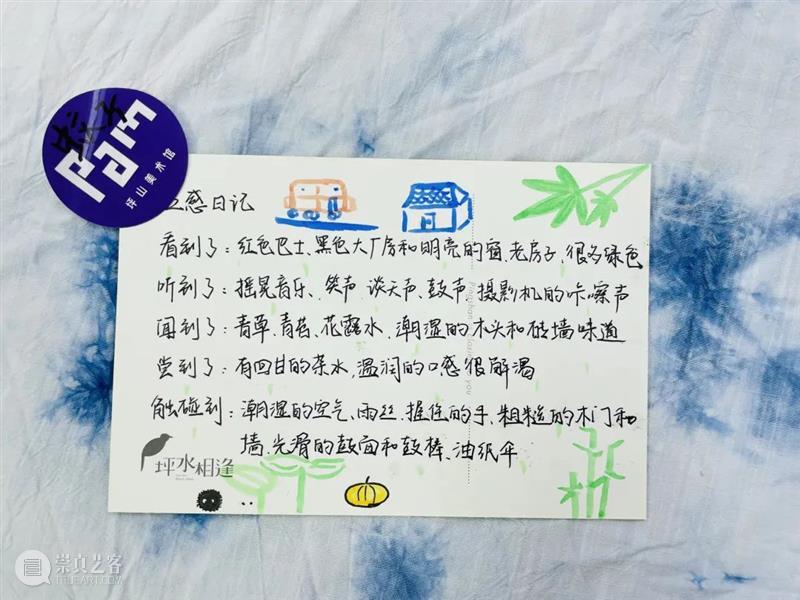 蚊子
Pam
坪山美术馆
五感日记
看到了：红色巴士、黑色大厂房和明亮的窗、老房子、很多绿色
听到了：摇晃音乐、笑声、谈天声、鼓声、摄影机的咔嚓声
闻到了：青草、青苔、花露水、潮湿的木头和砖墙味道
尝到了：有回甘的茶水，温润的口感很解渴
触碰到：潮湿的空气、雨丝、握住的手、粗糙的木门和
墙、光滑的鼓面和鼓棒、油纸伞
坪水相逢
崇真艺客
TRUEART.COM